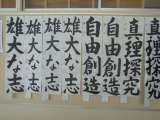 真理探究
真理探究
自由創造
自由創造
雄大な志
雄大な志
雄大な志
雄大な志